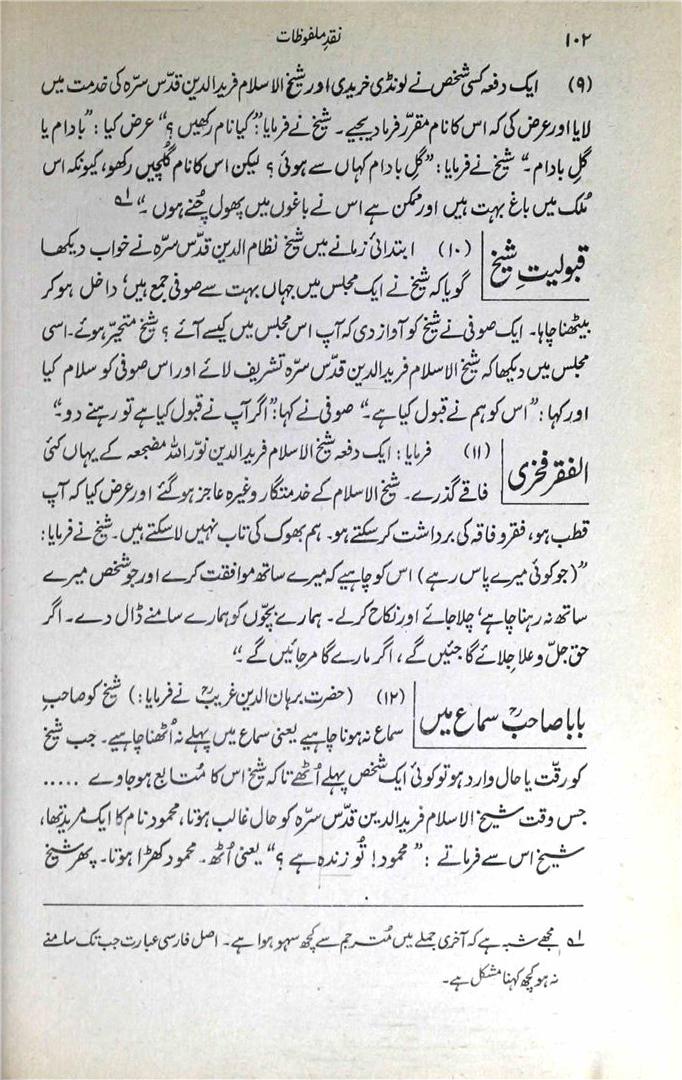 ۱۰۲
نقدِ ملفوظات
(۹) ایک دفعہ کسی شخص نے لونڈی خریدی اور شیخ الاسلام فرید الدین قدّس سرّہ کی خدمت میں
لایا اور عرض کی کہ اس کا نام مقرّر فرما دیجیے۔ شیخ نے فرمایا: "کیا نام رکھیں؟" عرض کیا: "بادام یا
گلِ بادام۔" شیخ نے فرمایا: "گلِ بادام کہاں سے ہوئی؟ لیکن اس کا نام گُلچیں رکھو، کیونکہ اس
مُلک میں باغ بہت ہیں اور ممکن ہے اس نے باغوں میں پھول چُنے ہوں۔" ؎۱
قبولیتِ شیخ
(۱۰) ابتدائی زمانے میں شیخ نظام الدین قدّس سرّہ نے خواب دیکھا
گویا کہ شیخ نے ایک مجلس میں جہاں بہت سے صوفی جمع ہیں، داخل ہو کر
بیٹھنا چاہا۔ ایک صوفی نے شیخ کو آواز دی کہ آپ اس مجلس میں کیسے آئے؟ شیخ متحیّر ہوئے۔ اسی
مجلس میں دیکھا کہ شیخ الاسلام فرید الدین قدّس سرّہ تشریف لائے اور اس صوفی کو سلام کیا
اور کہا: "اس کو ہم نے قبول کیا ہے۔" صوفی نے کہا: "اگر آپ نے قبول کیا ہے تو رہنے دو۔"
الفقر فخری
(۱۱) فرمایا: ایک دفعہ شیخ الاسلام فرید الدین نوّر اللہ مضجعہ کے یہاں کئی
فاقے گذرے۔ شیخ الاسلام کے خدمتگار وغیرہ عاجز ہو گئے اور عرض کیا کہ آپ
قطب ہو، فقر و فاقہ کی برداشت کر سکتے ہو۔ ہم بھوک کی تاب نہیں لا سکتے ہیں۔ شیخ نے فرمایا:
"(جو کوئی میرے پاس رہے) اس کو چاہیے کہ میرے ساتھ موافقت کرے اور جو شخص میرے
ساتھ نہ رہنا چاہے، چلا جائے اور نکاح کر لے۔ ہمارے بچّوں کو ہمارے سامنے ڈال دے۔ اگر
حق جلّ و علا جِلائے گا جئیں گے، اگر مارے گا مر جائیں گے۔"
بابا صاحبؒ سماع میں
(۱۲) (حضرت برہان الدین غریبؒ نے فرمایا:) شیخ کو صاحبِ
سماع نہ ہونا چاہیے یعنی سماع میں پہلے نہ اُٹھنا چاہیے۔ جب شیخ
کو رقّت یا حال وارد ہو تو کوئی ایک شخص پہلے اُٹھے تاکہ شیخ اس کا مُتابع ہو جاوے .....
جس وقت شیخ الاسلام فرید الدین قدّس سرّہ کو حال غالب ہوتا، محمود نام کا ایک مرید تھا،
شیخ اس سے فرماتے: "محمود! تُو زندہ ہے؟" یعنی اُٹھ۔ محمود کھڑا ہوتا۔ پھر شیخ
؎۱ مجھے شبہ ہے کہ آخری جملے میں مُترجم سے کچھ سہو ہوا ہے۔ اصل فارسی عبارت جب تک سامنے
نہ ہو کچھ کہنا مشکل ہے۔